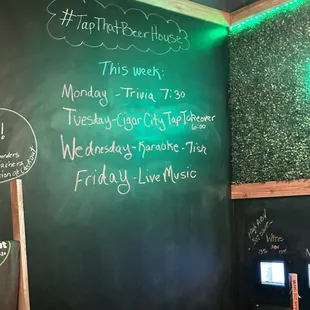 #TapThatBeerHouse
This week:
Monday - Trivia 7:30
Tuesday - Cigar City Tap Takeover
6:00
Wednesday - Karaoke - 7ish
Friday - Live Music
!